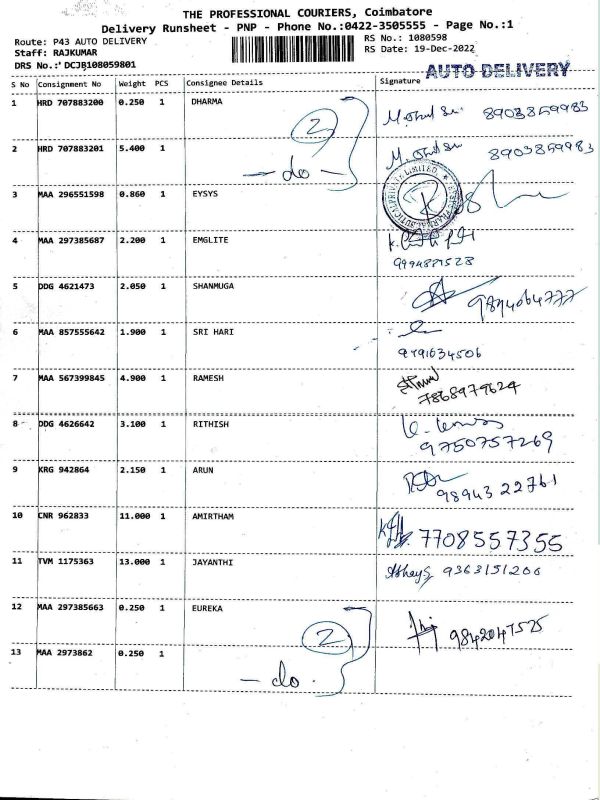 THE PROFESSIONAL COURIERS, Coimbatore
Delivery Runsheet - PNP - Phone No.:0422-3505555 - Page No.:1
Route: P43 AUTO DELIVERY
RS No.: 1080598
Staff: RAJKUMAR
RS Date: 19-Dec-2022
DRS No.: DCJB108059801
AUTO DELIVERY
S No Consignment No Weight PCS Consignee Details Signature
1 HRD 707883200 0.250 1 DHARMA 8903859983
2
2 HRD 707883201 5.400 1 8903859983
- do -
3 MAA 296551598 0.860 1 EYSYS
4 MAA 297385687 2.200 1 EMGLITE
5 DDG 4621473 2.050 1 SHANMUGA
6 MAA 857555642 1.900 1 SRI HARI
9791634506
7 MAA 567399845 4.900 1 RAMESH
7868979624
8 DDG 4626642 3.100 1 RITHISH
9750757269
9 KRG 942864 2.150 1 ARUN
98943 22761
10 CNR 962833 11.000 1 AMIRTHAM 7708557355
11 TVM 1175363 13.000 1 JAYANTHI 9363151206
12 MAA 297385663 0.250 1 EUREKA
2 9842047525
13 MAA 2973862 0.250 1
- do.